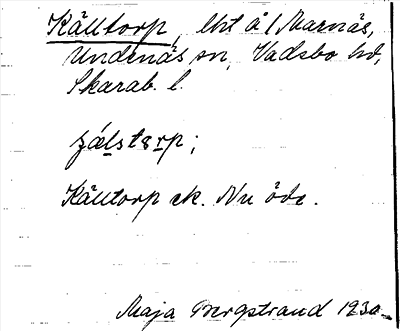 Källtorp, lht å 1 Marnäs,
Undenäs sn, Vadsbo hd,
Skarab. l.
Källtorp ek. Nu öde.
Maja Bergstrand 1930